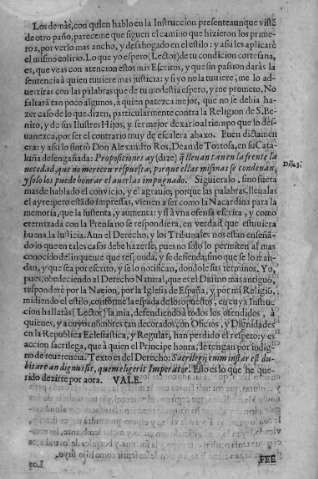 Los demàs, con quien hablo en la Instruccion presente aunque visten
de otro paño, pareceme que siguen el camino que hizieron los prime-
ros, por verlo mas ancho, y desahogado en el estilo: y assi les aplicarè
el mismo colirio. Lo que yo espero (Lector) de tu condicion cortesana,
es, que veas con atencion estos mis Escritos, y que sin passion daràs la
sentencia à quien tuviere mas justicia: y si yo no la tuviere, me lo ad-
vertiràs con las palabras que de tu modestia espero, y me prometo. No
faltarà tan poco algunos, à quien parezca mejor, que no le debia ha-
zer caso de lo que dizen, particularmente contra la Religion de S. Be-
nito, y de sus Ilustres Hijos, y ser mejor dexarlo al tiempo que lo des-
vanezca, por ser el contrario muy de escalera abaxo. Buen dictamen
era: y assi lo sintiò Don Alexandro Ros, Dean de Tortosa, en su Cata-
luña desengañada: Proposiciones ay (dize) q̃ llevan tan en la frente la
necedad, que no merecen respuesta, porque ellas mismas se condenan,
y solo los puede honrar el averlas impugnado. Siguieralo, sino fuera
mas de hablado el convicio, y el agravio, porque las palabras, llevalas
el ayre; pero estàs impressas, vienen à ser como la Nacardina para la
memoria, que la sustenta, y aumenta: y si à vna ofensa escrita, y como
eternizada con la Prensa no se respondiera, en verdad que estuviera
la justicia. Aun el Derecho, y los Tribunales nos estàn enseñan-
do lo que en tales casos debe hazerse, pues no solo lo permiten al mas
conocido delinquente que responda, y se defienda, sino que se lo man-
dan, y que sea por escrito, y se lo notifican, dandole sus terminos. Yo,
pues, obedeciendo al Derecho Natural, que es el Divino mas antiguo,
responderè por la Nacion, por la Iglesia de España, y por mi Religio,
midiendo el estilo, conforme la espada de los opuestos, en cuya Instruc-
cion hallaràs (Lector) la mia, defendiendo à todos los ofendidos, à
quienes, y a cuyos nombres tan decorados, con Oficios, y Dignidades
en la Republica Eclesiastica, y Regular, han perdido el respeto; y es
accion sacrilega, que à quien el Principe honra, le tengan por indig-
no de su herencia. Texto es del Derecho: Sacrilegij enim instar est du-
bitare an dignus sit, quem elegerit Imperator. Esto es lo que he que-
rido dezirte por aora. VALE.